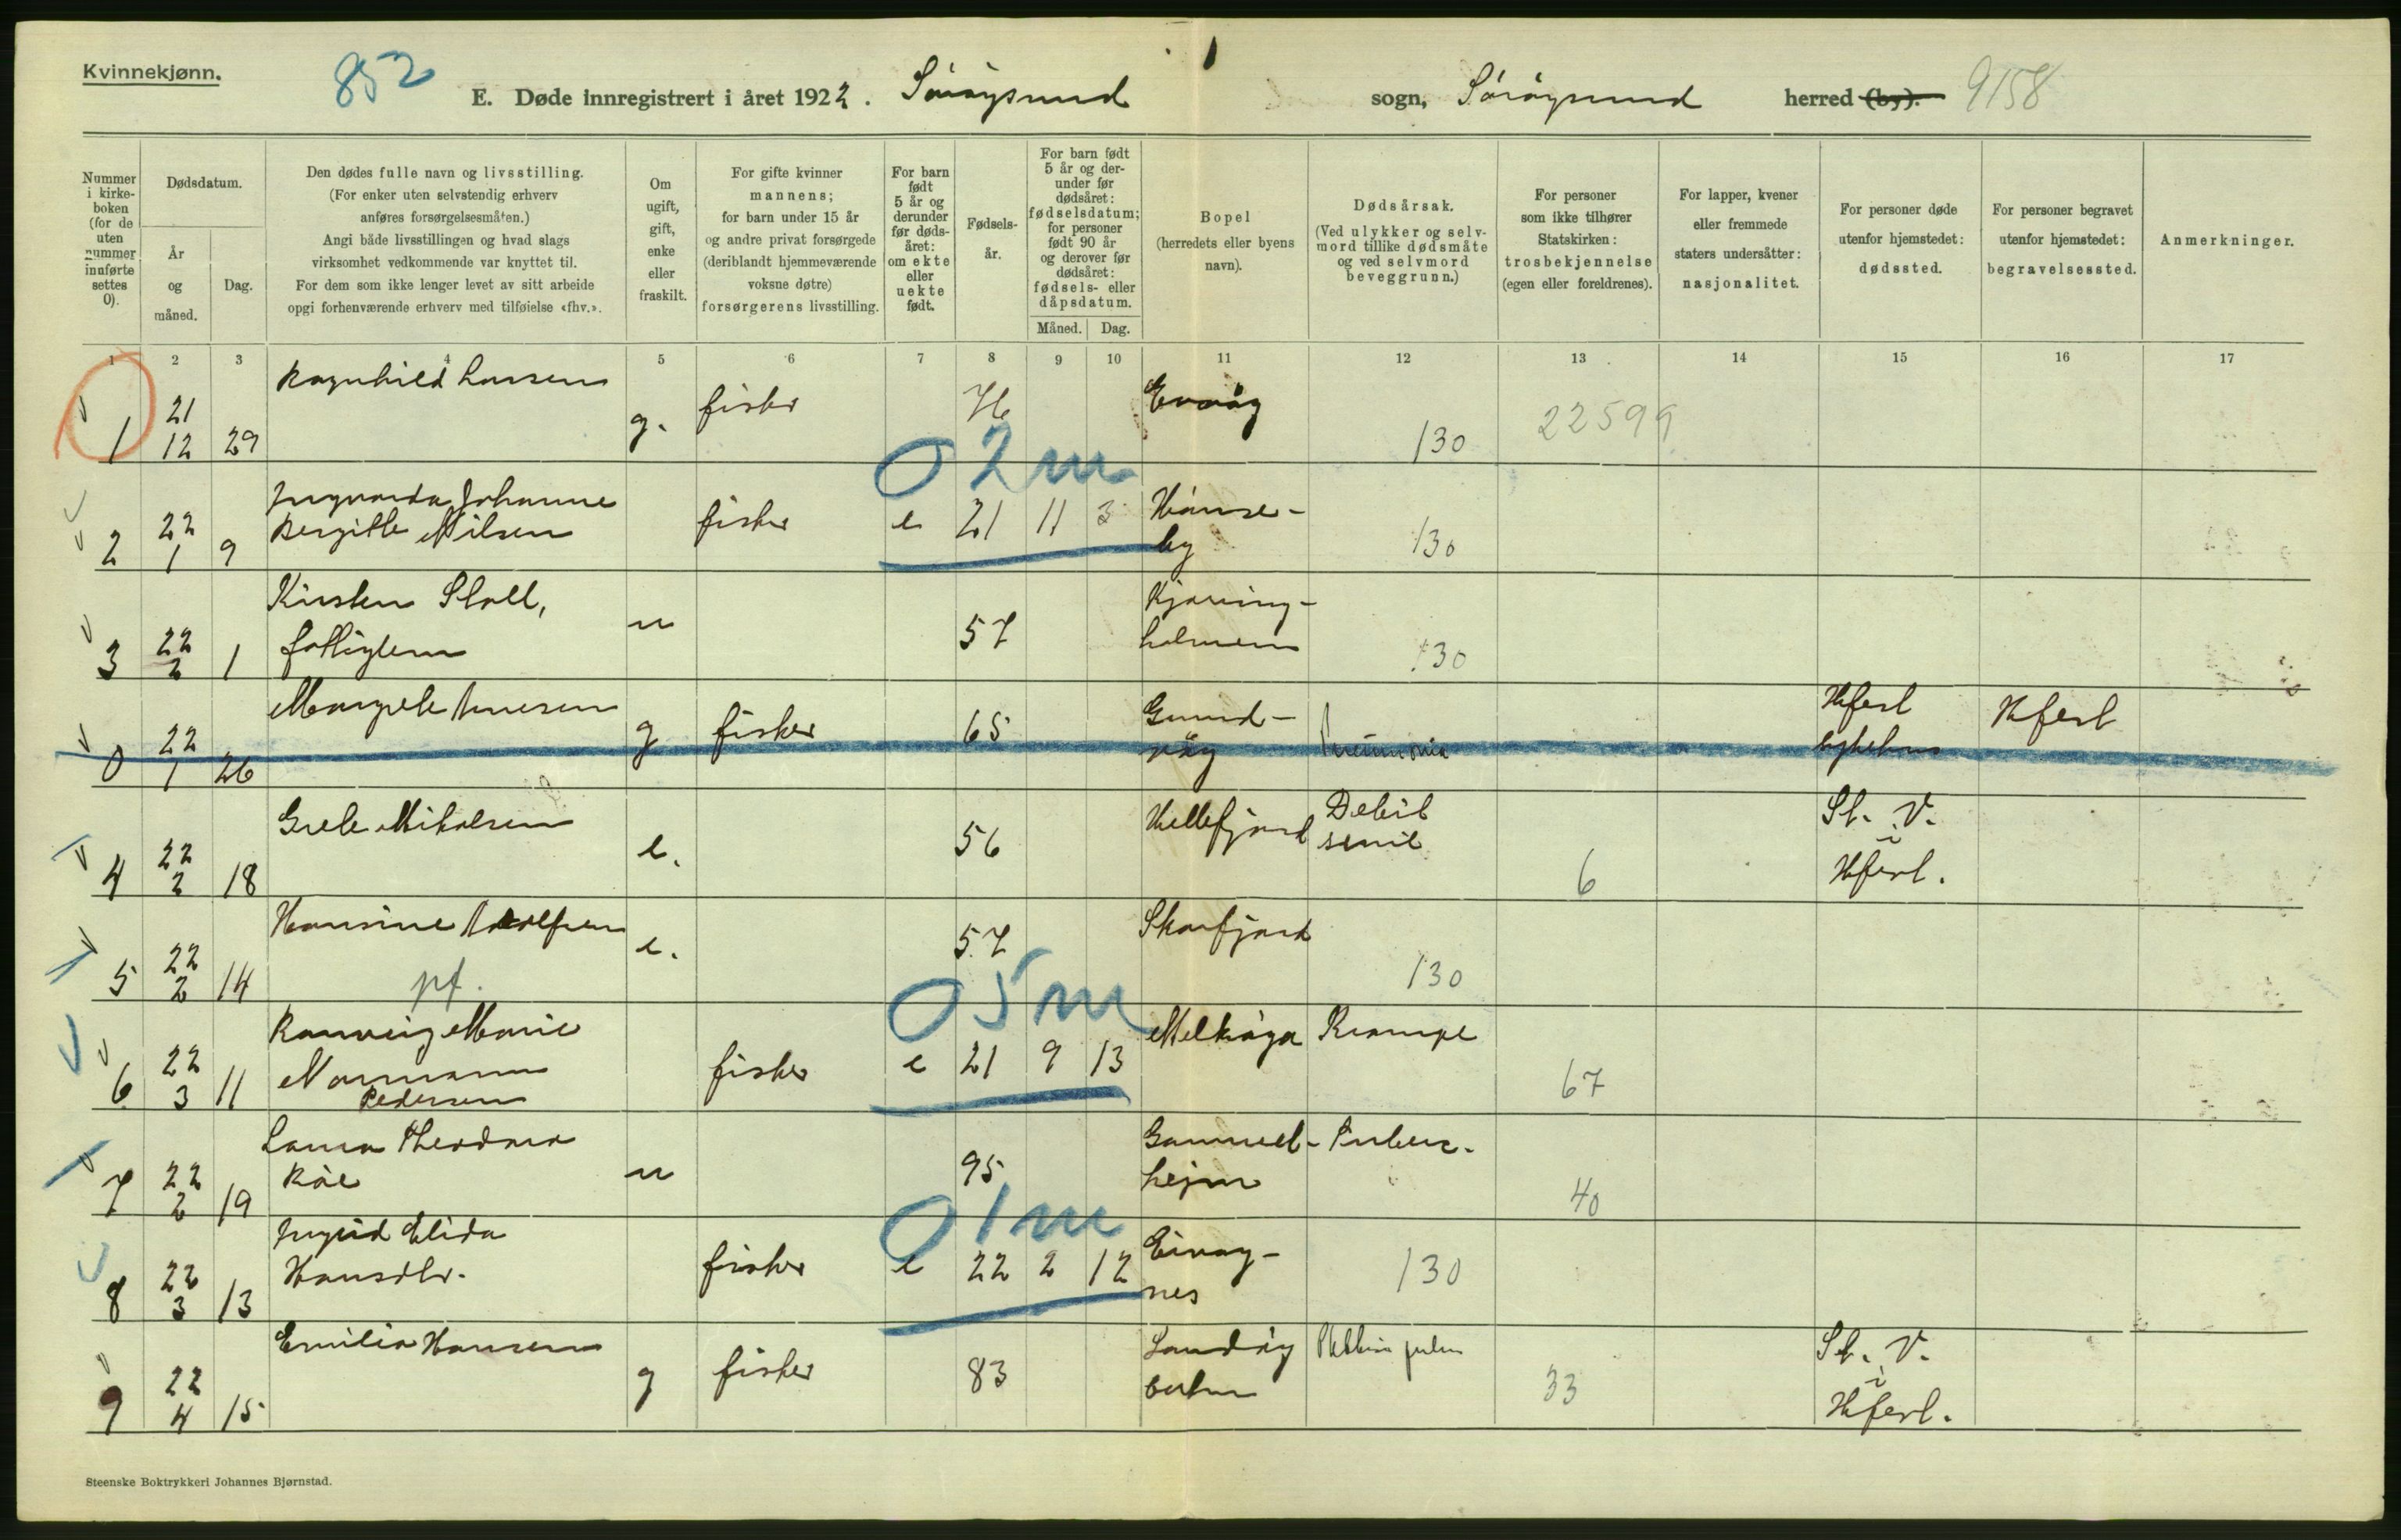 Kvinnekjønn.
852
E. Døde innregistrert i året 1922. Sørøysund sogn, Sørøysund herred (by). 9158
Nummer i kirke-boken (for de uten nummer innførte settes 0).
Dødsdatum.
År og måned.
Dag.
Den dødes fulle navn og livsstilling.
(For enker uten selvstendig erhverv
anføres forsørgelsesmåten.)
Angi både livsstillingen og hvad slags
virksomhet vedkommende var knyttet til.
For dem som ikke lenger levet av sitt arbeide
opgi forhenværende erhverv med tilføielse «fhv.».
Om ugift, gift, enke eller fraskilt.
For gifte kvinner
mannens;
for barn under 15 år
og andre privat forsørgede
(deriblandt hjemmeværende
voksne døtre)
forsørgerens livsstilling.
For barn født 5 år og derunder før døds-året: om ekte eller uekte født.
Fødsels-år.
For barn født 5 år og der-under før dødsåret: fødselsdatum; for personer født 90 år og derover før dødsåret: fødsels- eller dåpsdatum.
Måned. Dag.
Bopel
(herredets eller byens
navn).
Dødsårsak.
(Ved ulykker og selv-
mord tillike dødsmåte
og ved selvmord
beveggrunn.)
For personer
som ikke tilhører
Statskirken:
trosbekjennelse
(egen eller foreldrenes).
For lapper, kvener
eller fremmede
staters undersåtter:
nasjonalitet.
For personer døde
utenfor hjemstedet:
dødssted.
For personer begravet
utenfor hjemstedet:
begravelsessted.
Anmerkninger.
1 2 3 4 5 6 7 8 9 10 11 12 13 14 15 16 17
1 21 12 29 Ragnhild Larsen g. fisker 76 130 22599
02m
2 22 1 9 Ingvarda Johanne
Bergitte Nilsen fisker e 21 11 3 Hønse-
by 130
3 22 2 1 Kirsten Stoll,
fattiglem u 57 Kjøring-
holmen 130
0 22 1 26 Margrete Arnesen g fisker 65 Gund-
våg Pneumonia Hfest
sykehus Hfest
4 22 2 18 Grete Mikalsen e. 56 Hellefjord Debil
senil 6 St. V.
i
Hfest.
5 22 2 14 Hansine Adolfsen e. 57 Skarfjord 130
pf.
05m
6 22 3 11 Ranveig Marie
Normann
Pedersen fisker e 21 9 13 Melkøya Krampe 67
7 22 2 19 Laura Theodora
u 95 Gammel-
hejm Tuberc. 40
01m
8 22 3 13 Ingrid Elida
Hansdtr. fisker e 22 2 12
nes 130
9 22 4 15 Emilie Hansen g fisker 83 Landøy
33 St. V.
i
Hfest.
Steenske Boktrykkeri Johannes Bjørnstad.